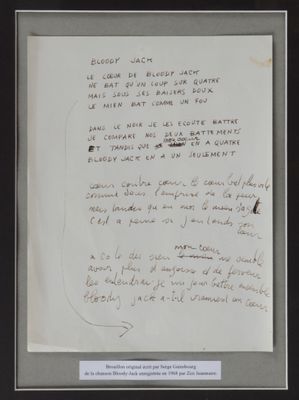 BLOODY JACK
LE CŒUR DE BLOODY JACK
NE BAT QU'UN COUP SUR QUATRE
MAIS SOUS SES BAISERS DOUX
LE MIEN BAT COMME UN FOU
DANS LE NOIR JE LES ECOUTE BATTRE
JE COMPARE NOS DEUX BATTEMENTS
mon coeur
ET TANDIS QUE EN A QUATRE
BLOODY JACK EN A UN SEULEMENT
cœur contre cœur le cœur bat plus vite
comme sous l'emprise de la peur
mais tandis qu'en moi le mien s'agite
c'est à peine si j'entends son
cœur
mon cœur
a coté du sien me semble
avoir plus d'angoisse et de ferveur
les entendrai je un jour battre ensemble
bloody jack a-t-il vraiment un cœur
Brouillon original écrit par Serge Gainsbourg
de la chanson Bloody Jack enregistrée en 1968 par Zizi Jeanmaire.